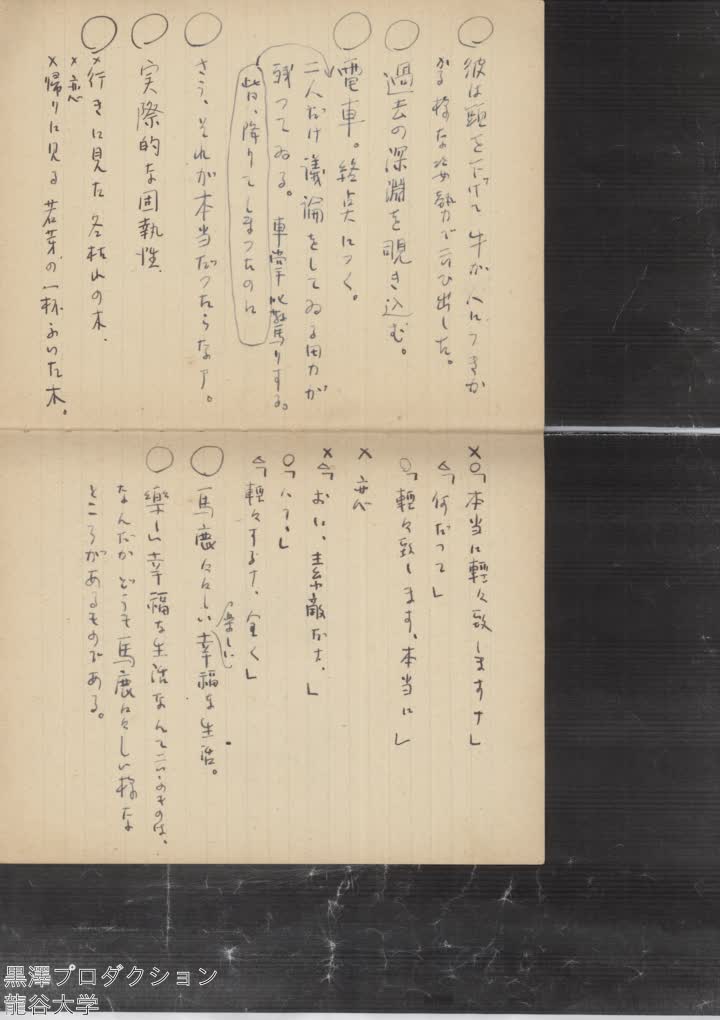 ○ 彼は頭を下げて牛が人につきか
かる様な姿勢で云ひ出した。
○ 過去の深淵を覗き込む。
○ 電車。終点につく。
二人だけ議論をしてゐる男が
残つてゐる。車掌吃驚りする。
皆、降りてしまつたのに
○ さう、それが本当だつたらなア。
○ 実際的な固執性
○ ×行きに見た冬枯山の木、
×恋
×帰りに見る若芽の一杯ふいた木。
×○「本当に輕々致しますナ」
△「何だつて」
○「輕々致します、本当に」
× 恋
×△「おい、素敵だナ。」
○「ハア。」
△「輕々するナ、全く」
○ 馬鹿々々しい幸福な生活。
(楽しい)
○ 樂しい幸福な生活なんて云ふものは、
なんだかどうも馬鹿々々しい様な
ところがあるものである。
黒澤プロダクション
龍谷大学